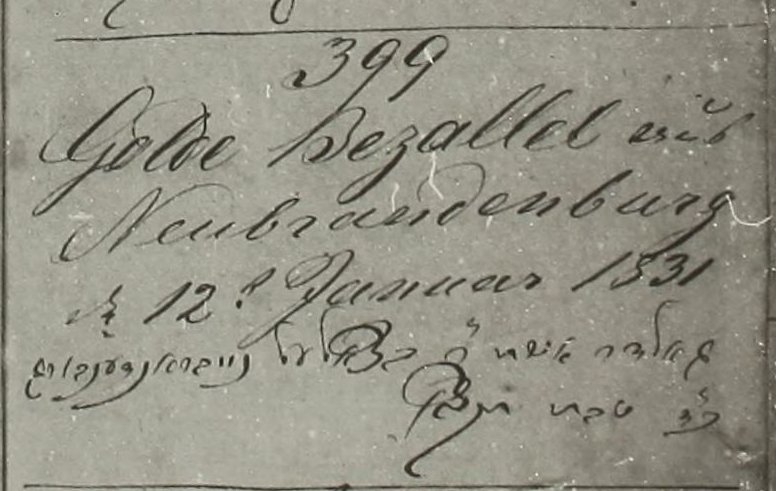 399
Golde Bezallel aus
Neubrandenburg
d 12t Januar 1831
גאלדה אשת ר' בצלאל נייבראנדענבורג
כ״ז טבת תקצ״א